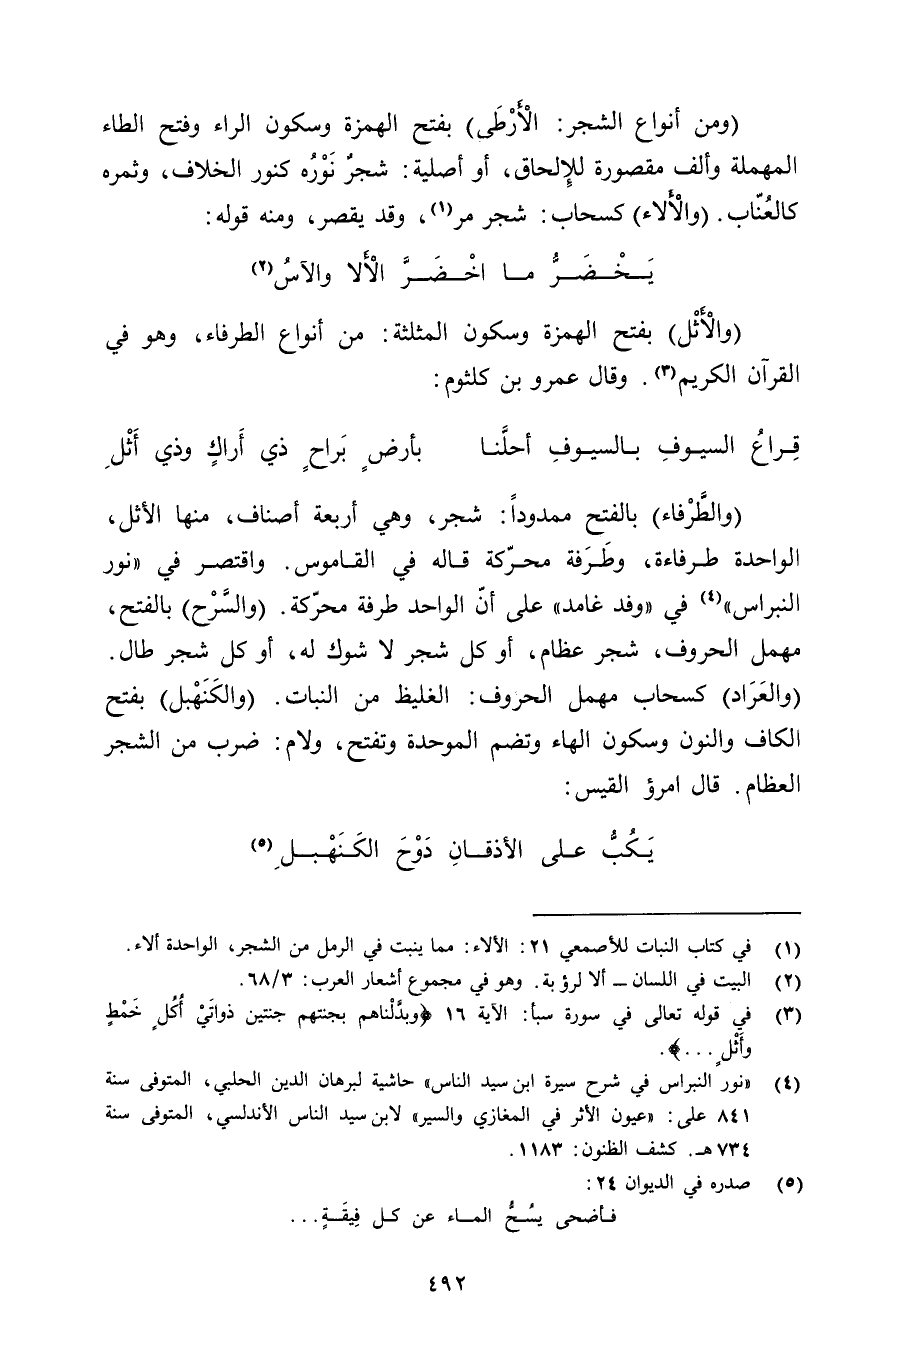 (ومن أنواع الشجر: الْأَرْطَى) بفتح الهمزة وسكون الراء وفتح الطاء
المهملة وألف مقصورة للإلحاق، أو أصلية: شجرٌ نَوْرُه كنور الخلاف، وثمره
كالعُنّاب. (والْأَلاء) كسحاب: شجر مر(١)، وقد يقصر، ومنه قوله:
يَـخْـضَـرُّ مـا اخْـضَـرَّ الْأَلا والآسُ(٢)
(والْأَثْل) بفتح الهمزة وسكون المثلثة: من أنواع الطرفاء، وهو في
القرآن الكريم(٣). وقال عمرو بن كلثوم:
قِـراعُ السيـوفِ بـالسيـوفِ أحلَّنـا بأرضٍ بَراحٍ ذي أَراكٍ وذي أَثْلِ
(والطَّرْفاء) بالفتح ممدوداً: شجر، وهي أربعة أصناف، منها الأثل،
الواحدة طـرفاءة، وطَـرَفة محـرّكة قـاله في القـاموس. واقتصـر في «نور
النبراس»(٤) في «وفد غامد» على أنّ الواحد طرفة محرّكة. (والسَّرْح) بالفتح،
مهمل الحروف، شجر عظام، أو كل شجر لا شوك له، أو كل شجر طال.
(والعَرَاد) كسحاب مهمل الحروف: الغليظ من النبات. (والكَنَهْبل) بفتح
الكاف والنون وسكون الهاء وتضم الموحدة وتفتح، ولام: ضرب من الشجر
العظام. قال امرؤ القيس:
يَـكُبُّ عـلى الأذقـانِ دَوْحَ الكَـنَـهْـبـلِ(٥)
(١) في كتاب النبات للأصمعي ٢١: الألاء: مما ينبت في الرمل من الشجر، الواحدة ألاء.
(٢) البيت في اللسان ــ ألا لرؤبة. وهو في مجموع أشعار العرب: ٦٨/٣.
(٣) في قوله تعالى في سورة سبأ: الآية ١٦ ﴿وبدَّلْناهم بجنتهم جنتين ذواتَيْ أُكُلٍ خَمْطٍ
وأَثْلٍ...﴾.
(٤) «نور النبراس في شرح سيرة ابن سيد الناس» حاشية لبرهان الدين الحلبي، المتوفى سنة
٨٤١ على: «عيون الأثر في المغازي والسير» لابن سيد الناس الأندلسي، المتوفى سنة
٧٣٤هـ. كشف الظنون: ١١٨٣.
(٥) صدره في الديوان ٢٤:
فـأضحى يسُـحُّ المـاء عن كـل فِيقَـةٍ...
٤٩٢